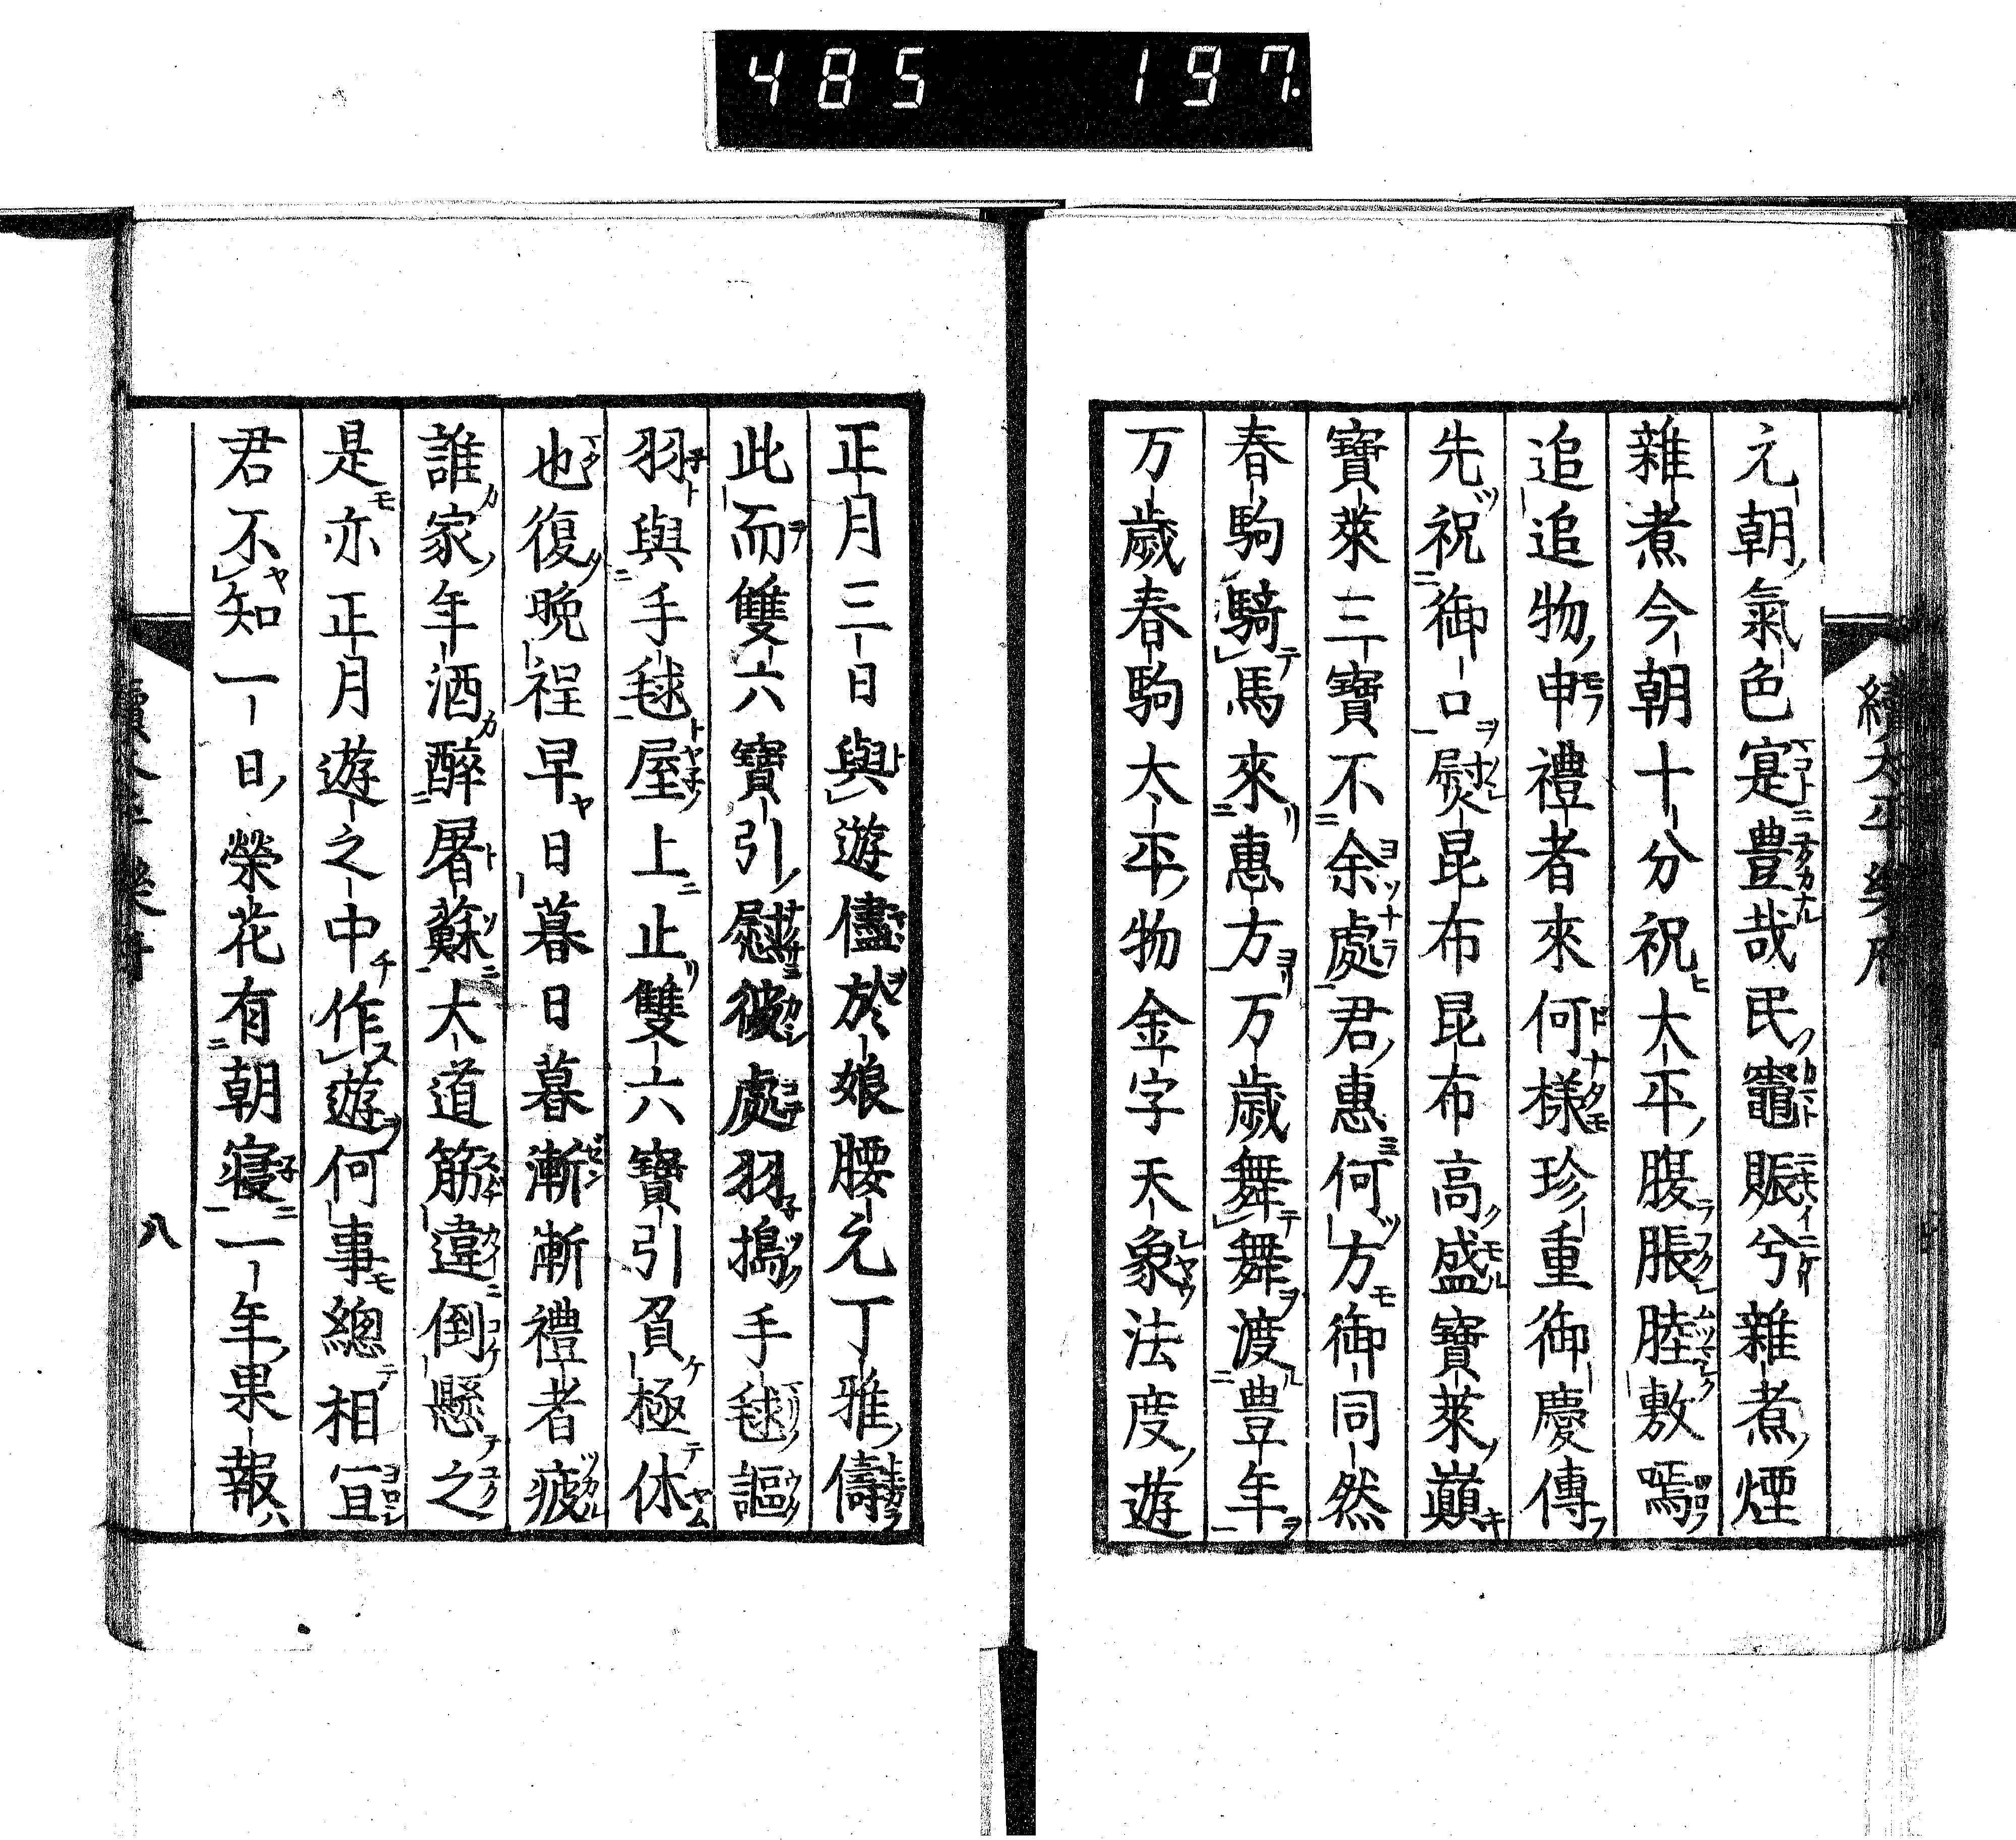 485 197.
續太平樂府
元朝氣色寔豊哉民竈賑兮雜煮煙
雜煮今朝十分祝太平腹脹睦敷嘕
追追物申禮者來何樣珍重御慶傳
先祝御口熨昆布昆布高盛寶萊巔
寶萊三寶不余處君惠何方御同然
春駒騎馬來惠方万歲舞舞渡豊年
万歲春駒太平物金字天象法度遊
正月三日與遊儘於娘腰元丁雅儔
此而雙六寶引慰彼處羽搗手毬謳
羽與手毬屋上止雙六寶引負極休
也復晚裎早日暮日暮漸漸禮者疲
誰家年酒醉屠蘇大道筋違倒懸之
是亦正月遊之中作遊何事總相宜
君不知一日榮花有朝寢一年果報
八